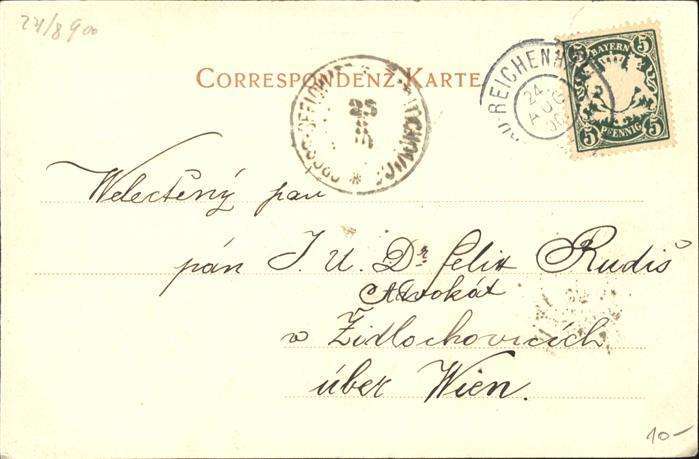 24/8 900
CORRESPONDENZ-KARTE
REICHENH
24
AUG
00
BAYERN
5 5
5 5
PFENNIG
25
Welectěný pan
pán J. U. Dr. Felix Rudiš
Advokát
v Židlochovicích
über Wien.
10-